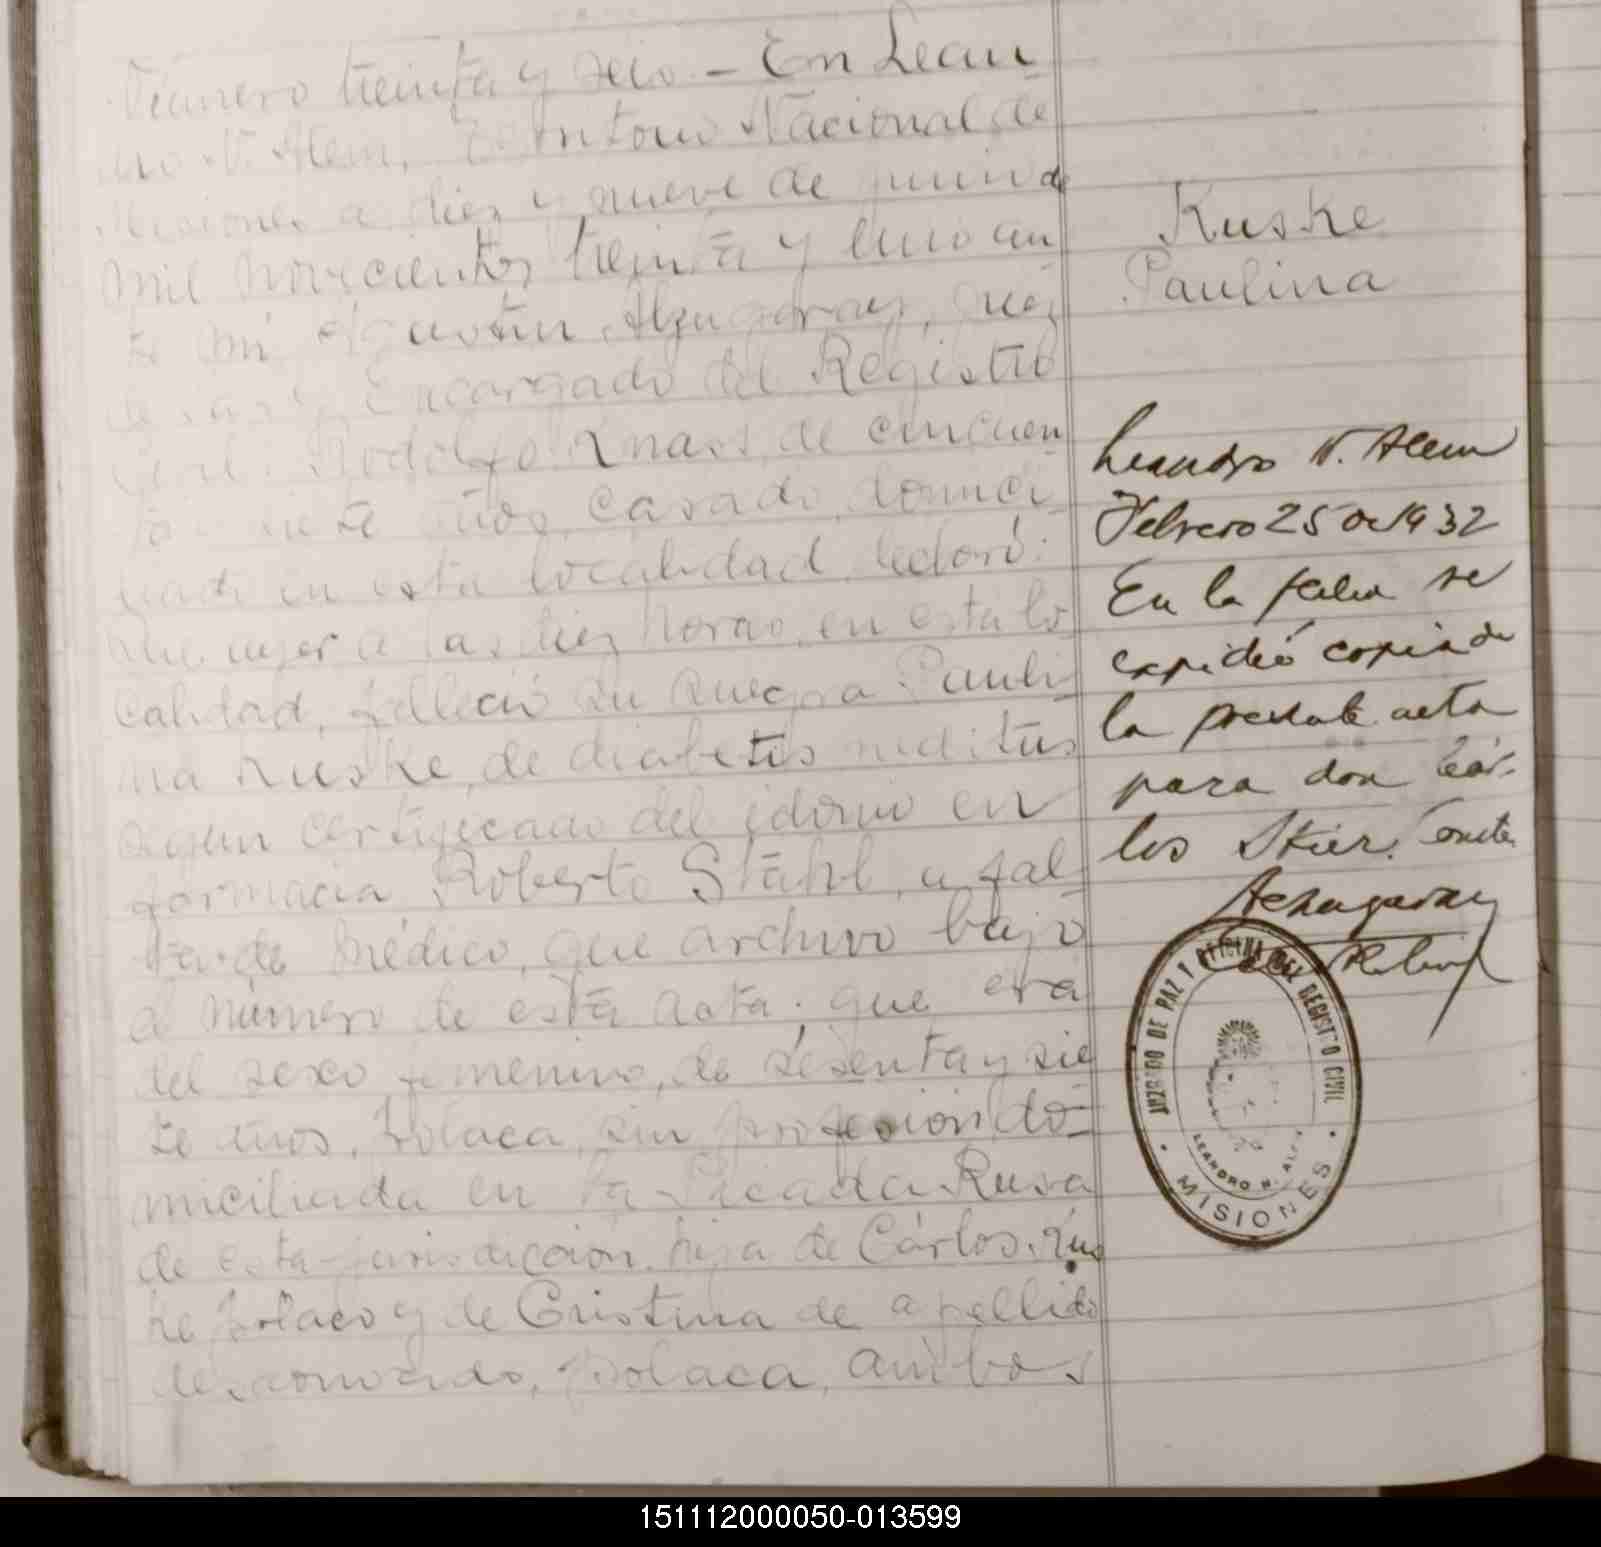 Número treinta y seis. - En Lean
dro N. Alem, Territorio Nacional de
Misiones a diez y nueve de junio de
mil novecientos treinta y uno an
te mi Agustín Alzugaray, Juez
de Paz y Encargado del Registro
Civil, Rodolfo Knass, de cincuen
ta y siete años, casado, domici
liado en esta localidad, declaró:
que ayer a las diez horas, en esta lo
calidad, falleció su suegra Pauli
na Kuske, de diabetis
según certificado del idóneo en
farmacia Roberto Stahl, a fal
ta de médico, que archivo bajo
el número de esta acta; que era
del sexo femenino, de sesenta y sie
te años, polaca, sin profesión, do-
miciliada en la Picada Rusa
de esta jurisdicción, hija de Cárlos Kus
ke polaco y de Cristina de apellido
desconocido, polaca, ambos
Kuske
Paulina
Leandro N. Alem
Febrero 25 de 1932
En la fecha se
expidió copia de
la presente acta
para don Cár-
los Stier. Conste
JUZGADO DE PAZ Y OFICINA DEL REGISTRO CIVIL
LEANDRO N. ALEM
MISIONES
151112000050-013599